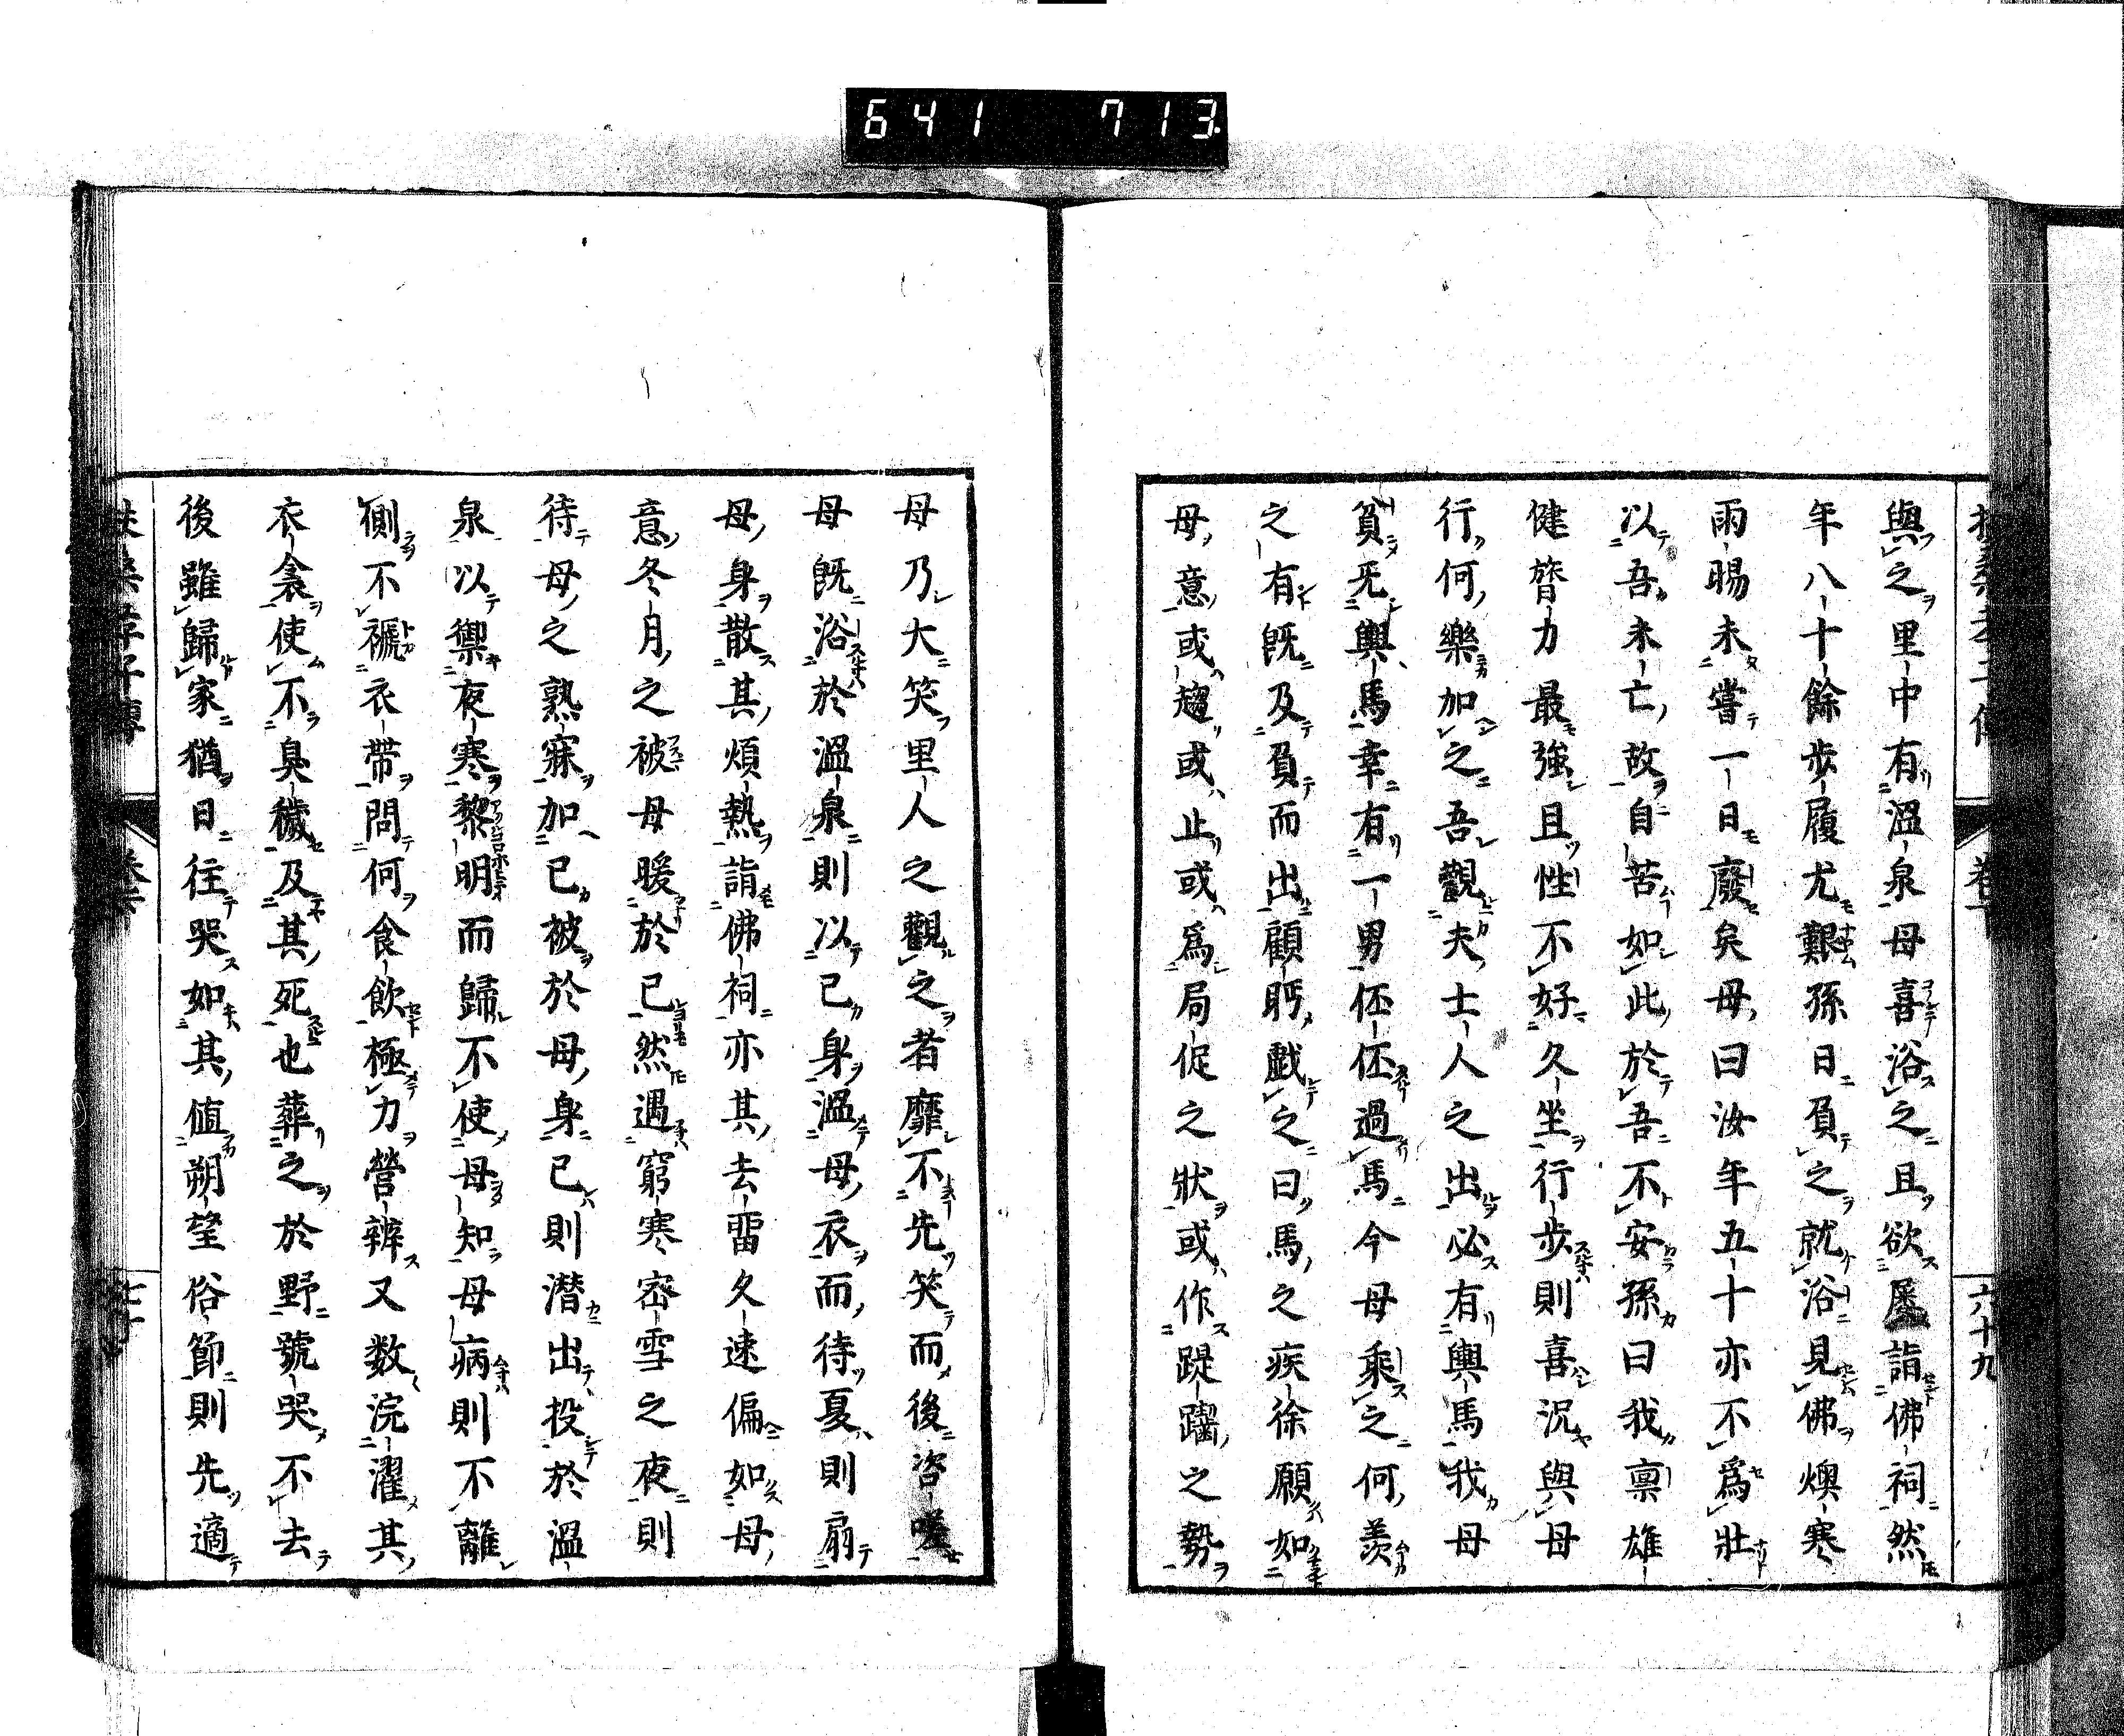 641 713
六十九
與之里中有溫泉母喜浴之且欲屡詣佛祠然
年八十餘歩履尤艱孫日負之就浴見佛燠寒
雨暘未嘗一日廢矣母曰汝年五十亦不爲壯
以吾未亡故自苦如此於吾不安孫曰我禀雄
健膂力最強且性不好久坐行歩則喜況與母
行何樂加之吾觀夫士人之出必有輿馬我母
貧旡輿馬幸有一男伾伾過馬今母乘之何羨
之有既及負而出顧眄戲之曰馬之疾徐願如
母意或趨或止或爲局促之狀或作踶躢之勢
母乃大笑里人之觀之者靡不先笑而後咨嗟
母既浴於溫泉則以已身溫母衣而待夏則扇
母身散其煩熱詣佛祠亦其去畱久速偏如母
意冬月之被母暖於已然遇窮寒密雪之夜則
待母之熟寐加已被於母身已則潜出投於溫
泉以禦夜寒黎明而歸不使母知母病則不離
側不褫衣帶問何食飲極力營辨又数浣濯其
衣衾使不臭穢及其死也葬之於野號哭不去
後雖歸家猶日往哭如其値朔望俗節則先適